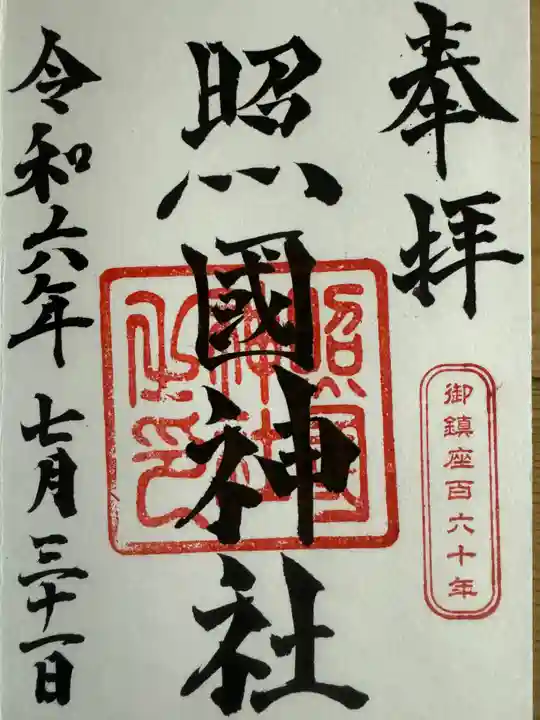 奉拝
御鎮座百六十年
照國神社
照國神社之印
令和六年七月三十一日